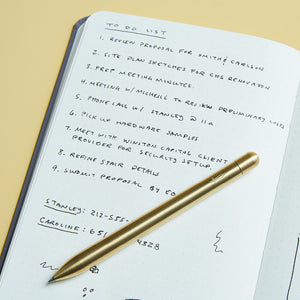 TO DO LIST
1. REVIEW PROPOSAL FOR SMITH & CARLSON
2. SITE PLAN SKETCHES FOR CDS RENOVATION
3. PREP MEETING MINUTES.
4. MEETING W/ MICHELLE TO REVIEW PRELIMINARY COSTS
5. PHONE CALL W/ STANLEY @ 11a
6. PICK UP HARDWARE SAMPLES
7. MEET WITH WINSTON CAPITAL CLIENT
PROVIDER FOR SECURITY SETUP.
8. REFINE STAIR DETAILS
9. SUBMIT PROPOSAL BY EO
STANLEY: 212-555-
CAROLINE: 651 4828